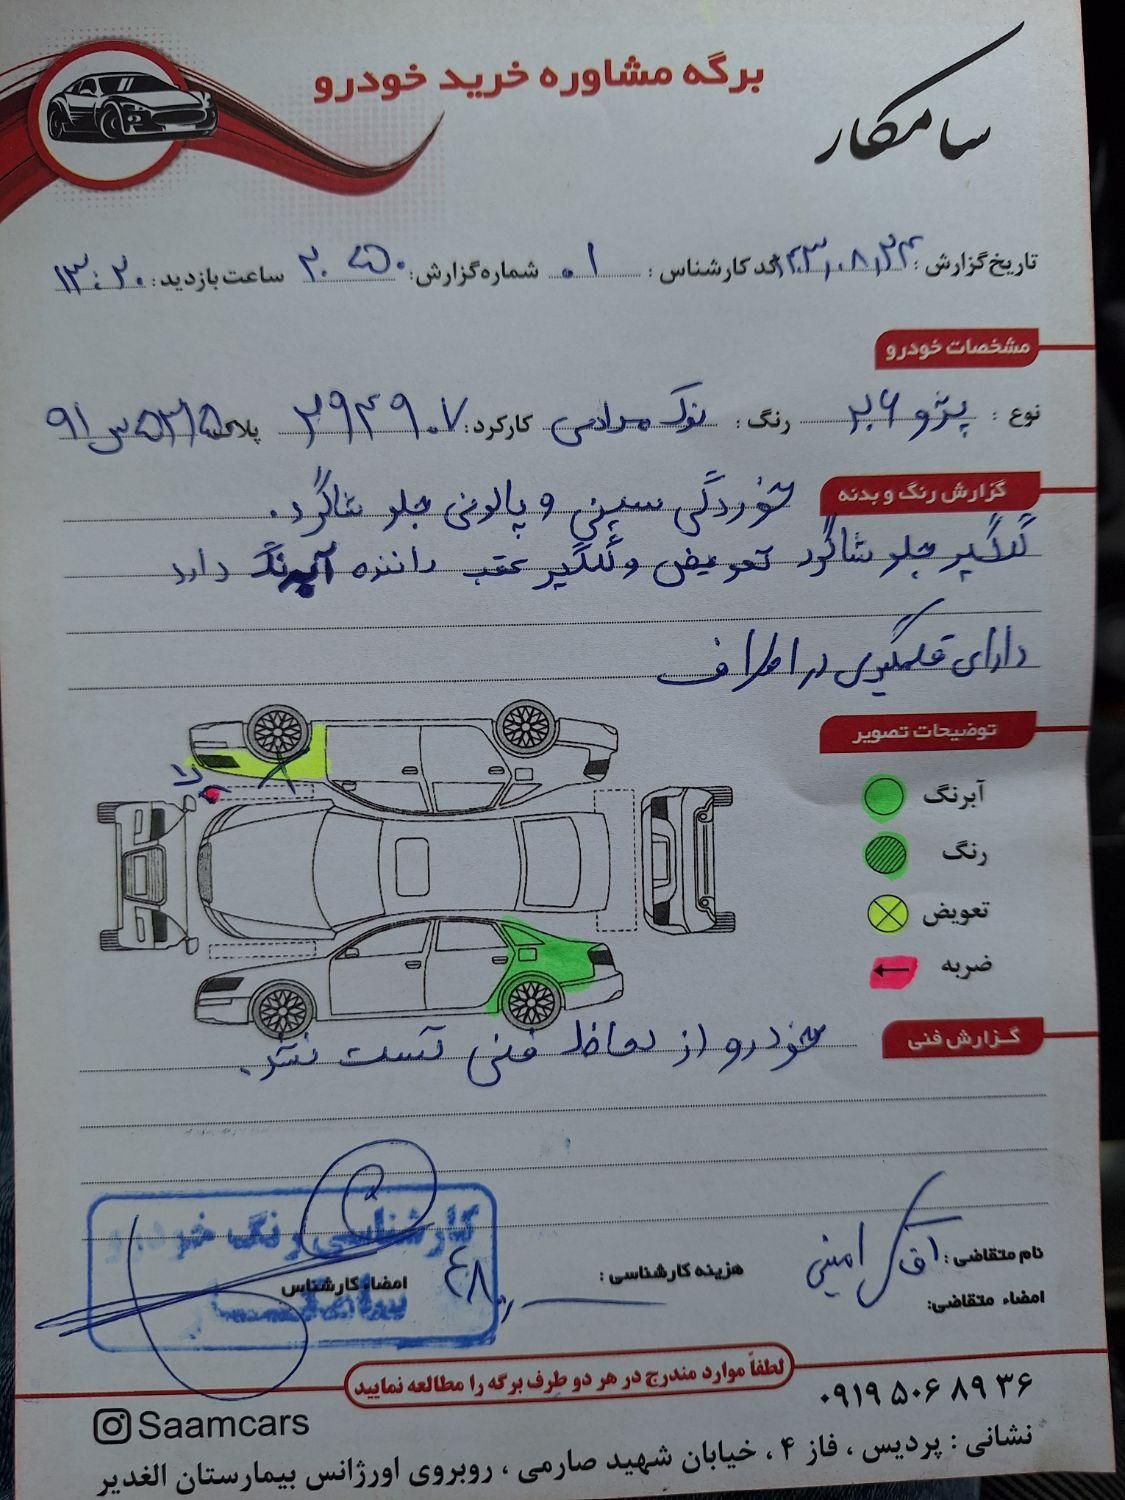 سامکار
برگه مشاوره خرید خودرو
تاریخ گزارش : کد کارشناس : ۰۱ شماره گزارش: ساعت بازدید : ۱۳:۲۰
مشخصات خودرو
نوع : پژو ۲۰۶ رنگ : نوک مدادی کارکرد: ۲۹۴۹۰۷ پلاک:
گزارش رنگ و بدنه
خوردگی سینی و پالونی جلو شاگرد.
گلگیر جلو شاگرد تعویض و گلگیر عقب راننده آبرنگ دارد
دارای قلمگیری در اطراف
توضیحات تصویر
آبرنگ
رنگ
تعویض
ضربه
گزارش فنی
خودرو از لحاظ فنی تست نشد.
کارشناسی رنگ خودرو
نام متقاضی : آقای امینی
هزینه کارشناسی :
امضاء کارشناس
امضاء متقاضی:
لطفاً موارد مندرج در هر دو طرف برگه را مطالعه نمایید
۰۹۱۹ ۵۰۶ ۸۹ ۳۶
Saamcars
نشانی : پردیس ، فاز ۴ ، خیابان شهید صارمی ، روبروی اورژانس بیمارستان الغدیر